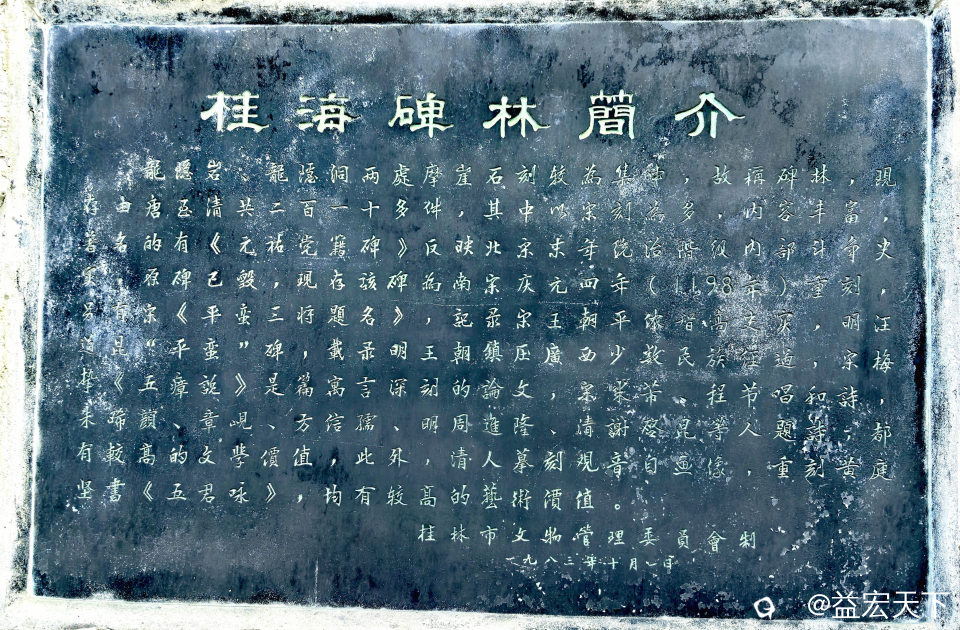 桂海碑林簡介
龍隱岩、龍隱洞兩處摩崖石刻較為集中，故稱碑林，現
存由唐至清共二百一十多件，其中以宋刻為多，内容丰富，
著名的有《元祐党籍碑》反映北宋末年统治階级内部斗争史
实，原碑已毀，現存該碑為南宋庆元四年（1198年）重刻，
另有宋《平蛮三将題名》，記录宋王朝平侬智高史实，明汪
道昆“平蛮”碑，載录明王朝鎮压廣西少数民族
《五瘴説》是篇寓言深刻的論文，宋
朱蹄顏、章峴、方信孺、明周進隆、清謝启昆等人題詩，都
有較高的文學價值，此外，清人摹刻观音自画像，重刻黄庭
坚書《五君咏》，均有較高的藝術價值。
桂林市文物管理委員會制
一九八三年十月一日
@益宏天下